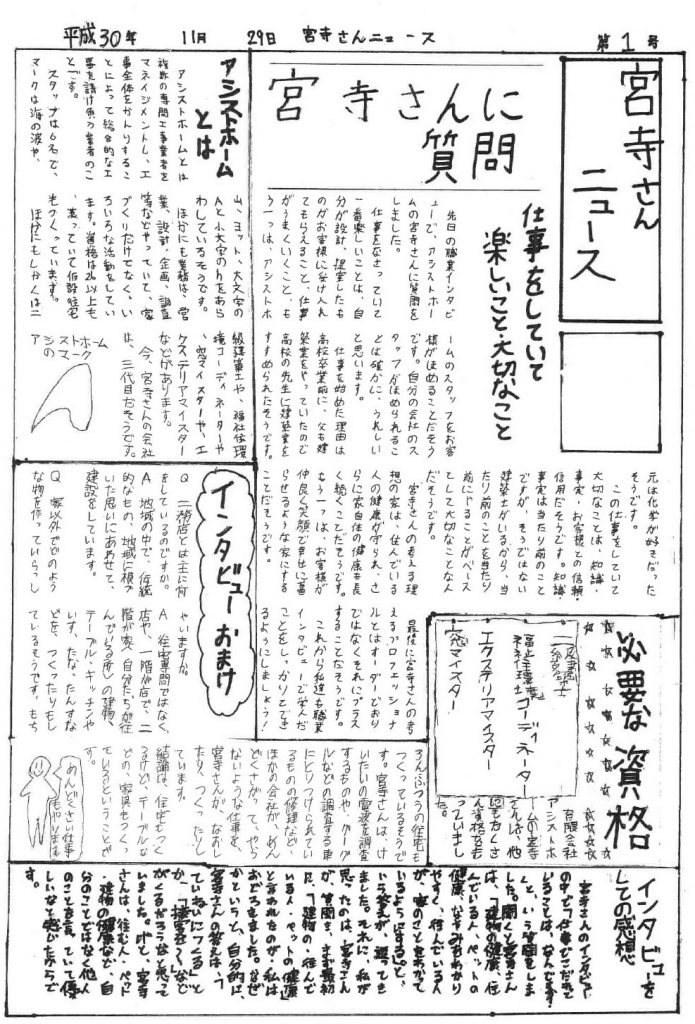 平成30年 11月 29日 宮寺さんニュース 第1号
宮寺さん
ニュース
宮寺さんに
質問
仕事をしていて
楽しいこと・大切なこと
先日の職業インタビ
ューで、アシストホー
ムの宮寺さんに質問を
しました。
仕事をなさっていて
一番楽しいことは、自
分が設計、提案したも
のがお客様に受け入れ
てもらえること、仕事
がうまくいくこと、も
う一つは、アシストホ
ームのスタッフをお客
様がほめることだそう
です。自分の会社のス
タッフがほめられるこ
とは確かに、うれしい
と思います。
仕事を始めた理由は
高校卒業前に、父も建
築業をやっていたので
高校の先生に建築業を
すすめられたそうです。
元は化学が好きだった
そうです。
この仕事をしていて
大切なことは、知識・
事実・お客様との信頼・
信用だそうです。知識・
事実は当たり前のこと
ですが、そうではない
建築士がいるから、当
たり前のことを当たり
前にやることがベース
として大切なことなん
だそうです。
宮寺さんの考える理
想の家は、住んでいる
人の健康が守られ、さ
らに家自体の健康も長
く続くことだそうです。
もう一つは、お客様が
仲良く笑顔で幸せに暮
らせるような家にする
ことだそうです。
最後に宮寺さんの考
えるプロフェッショナ
ルとはオーダーどおり
ではなくそれにプラス
することだそうです。
これから私達も職業
インタビューで学んだ
ことをしっかりとでき
るようにしましょう！
アシストホーム
とは
アシストホームとは
複数の専門工事業者を
マネイジメントし、工
事全体をかんりするこ
とによって総合的な工
事を請け負う業者のこ
とです。
スタッフは6名で、
マークは海の波や、
山、ヨット、大文字の
Aと小文字のhをあら
わしているそうです。
ほかにも業務は、営
業、設計、企画、調査
等などやっていて、家
づくりだけでなく、い
ろいろな活動をしてい
ます。資格は24以上も
持っていて仮設住宅
もつくっています。
ほかにもしかくは二
級建築士や、福祉住環
境コーディネーターや
、窓マイスターや、エ
クステリアマイスター
などがあります。
今、宮寺さんの会社
は、三代目だそうです。
アシストホーム
のマーク
インタビューおまけ
Q 工務店とは主に何
をしているのですか。
A 地域の中で、伝統
的なもの、地域に根づ
いた思いにあわせて、
建設をしています。
Q 家以外でどのよう
な物を作っていらっし
ゃいますか。
A 住宅専門ではなく、
店や、一階が店で、二
階が家(自分たちが住
んでいる所)の建物、
テーブル・キッチンや
いす、たな、たんすな
どを、つくったりもし
ているそうです。もち
ろんふつうの住宅も
つくっているそうで
す。宮寺さんは、け
いたいの電波を調査
するものや、グーグ
ルなどの調査する車
にとりつけられてい
るものの修理など、
ほかの会社が、めん
どくさがって、やら
ないような仕事を、
宮寺さんが、なおし
たり、つくったりし
ています。
結論は、住宅もつく
るけど、テーブルな
どの、家具もつくっ
ているということで
す。
めんどくさい仕事
もやります
必要な資格
二級建築士
福祉住環境コーディネーター
エクステリアマイスター
窓マイスター
有限会社
アシストホ
ームの宮寺
さんは、他
にもたくさ
ん資格をも
っていまし
た。
インタビューを
しての感想
宮寺さんのインタビュー
の中で「仕事でこだわって
いることは、なんですか？
」と、いう質問をしま
した。聞くと宮寺さん
は、「建物の健康、住
んでいる人・ペットの
健康、なやみをわかり
やすく、住んでいる人
が、家のことをわかって
いるようにする。」と、
いう答えが、返ってき
ました。それに、私が
思ったのは、宮寺さん
が、質問をし、まず最初
に、「建物の・住んで
いる人・ペットの健康」
と言われたのが、私は
おどろきました。なぜ
かというと、自分的に、
宮寺さんの答えは、「
ていねいにつくる」と
か、「接客を～」など
がくるだろうなと思って
いました。けど、宮寺
さんは、住む人・ペット
・建物の健康など、自
分のことではなく他人
のことを言っていて優
しいなと感じたからで
す。